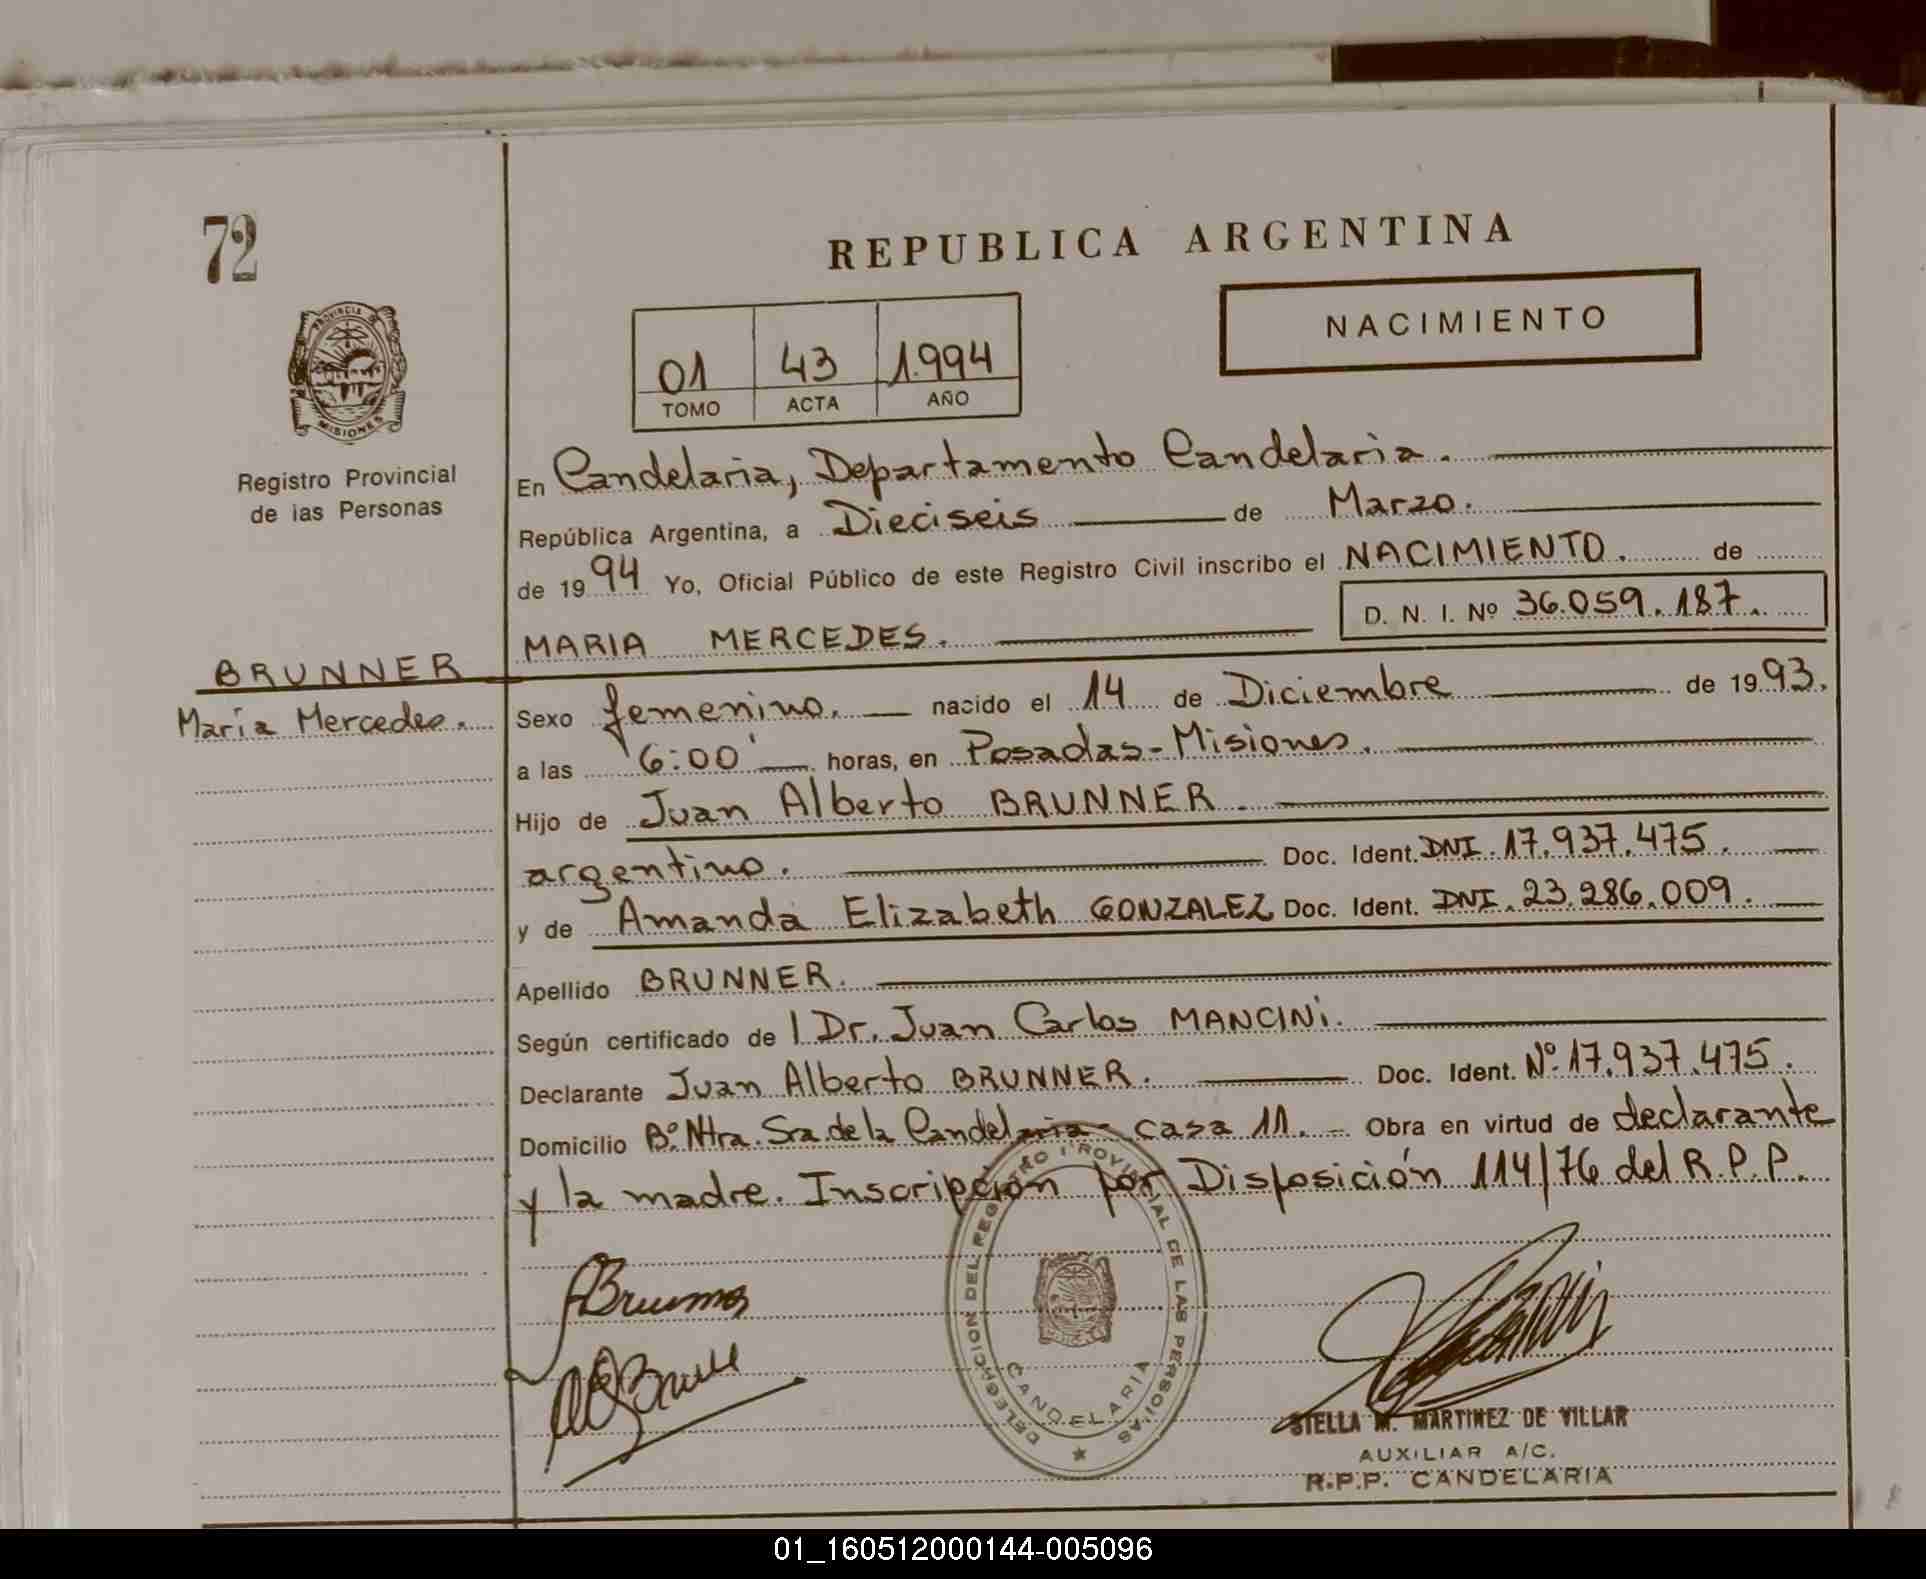 72
REPUBLICA ARGENTINA
NACIMIENTO
01 43 1.994
TOMO ACTA AÑO
PROVINCIA DE
MISIONES
Registro Provincial
de las Personas
En Candelaria, Departamento Candelaria.
República Argentina, a Dieciseis de Marzo.
de 1994 Yo, Oficial Público de este Registro Civil inscribo el NACIMIENTO. de
D. N. I. Nº 36.059.187.
MARIA MERCEDES.
BRUNNER
María Mercedes.
Sexo femenino. nacido el 14 de Diciembre de 1993.
a las 6:00 horas, en Posadas-Misiones.
Hijo de Juan Alberto BRUNNER.
argentino. Doc. Ident. DNI. 17.937.475.
y de Amanda Elizabeth GONZALEZ Doc. Ident. DNI. 23.286.009.
Apellido BRUNNER.
Según certificado de l Dr. Juan Carlos MANCINi.
Declarante Juan Alberto BRUNNER. Doc. Ident. Nº 17.937.475.
Domicilio Bº Ntra. Sra. de la Candelaria- casa 11. - Obra en virtud de declarante
y la madre. Inscripción por Disposición 114/76 del R.P.P.
DELEGACION DEL REGISTRO PROVINCIAL DE LAS PERSONAS
CANDELARIA
STELLA M. MARTINEZ DE VILLAR
AUXILIAR A/C.
R.P.P. CANDELARIA
01_160512000144-005096